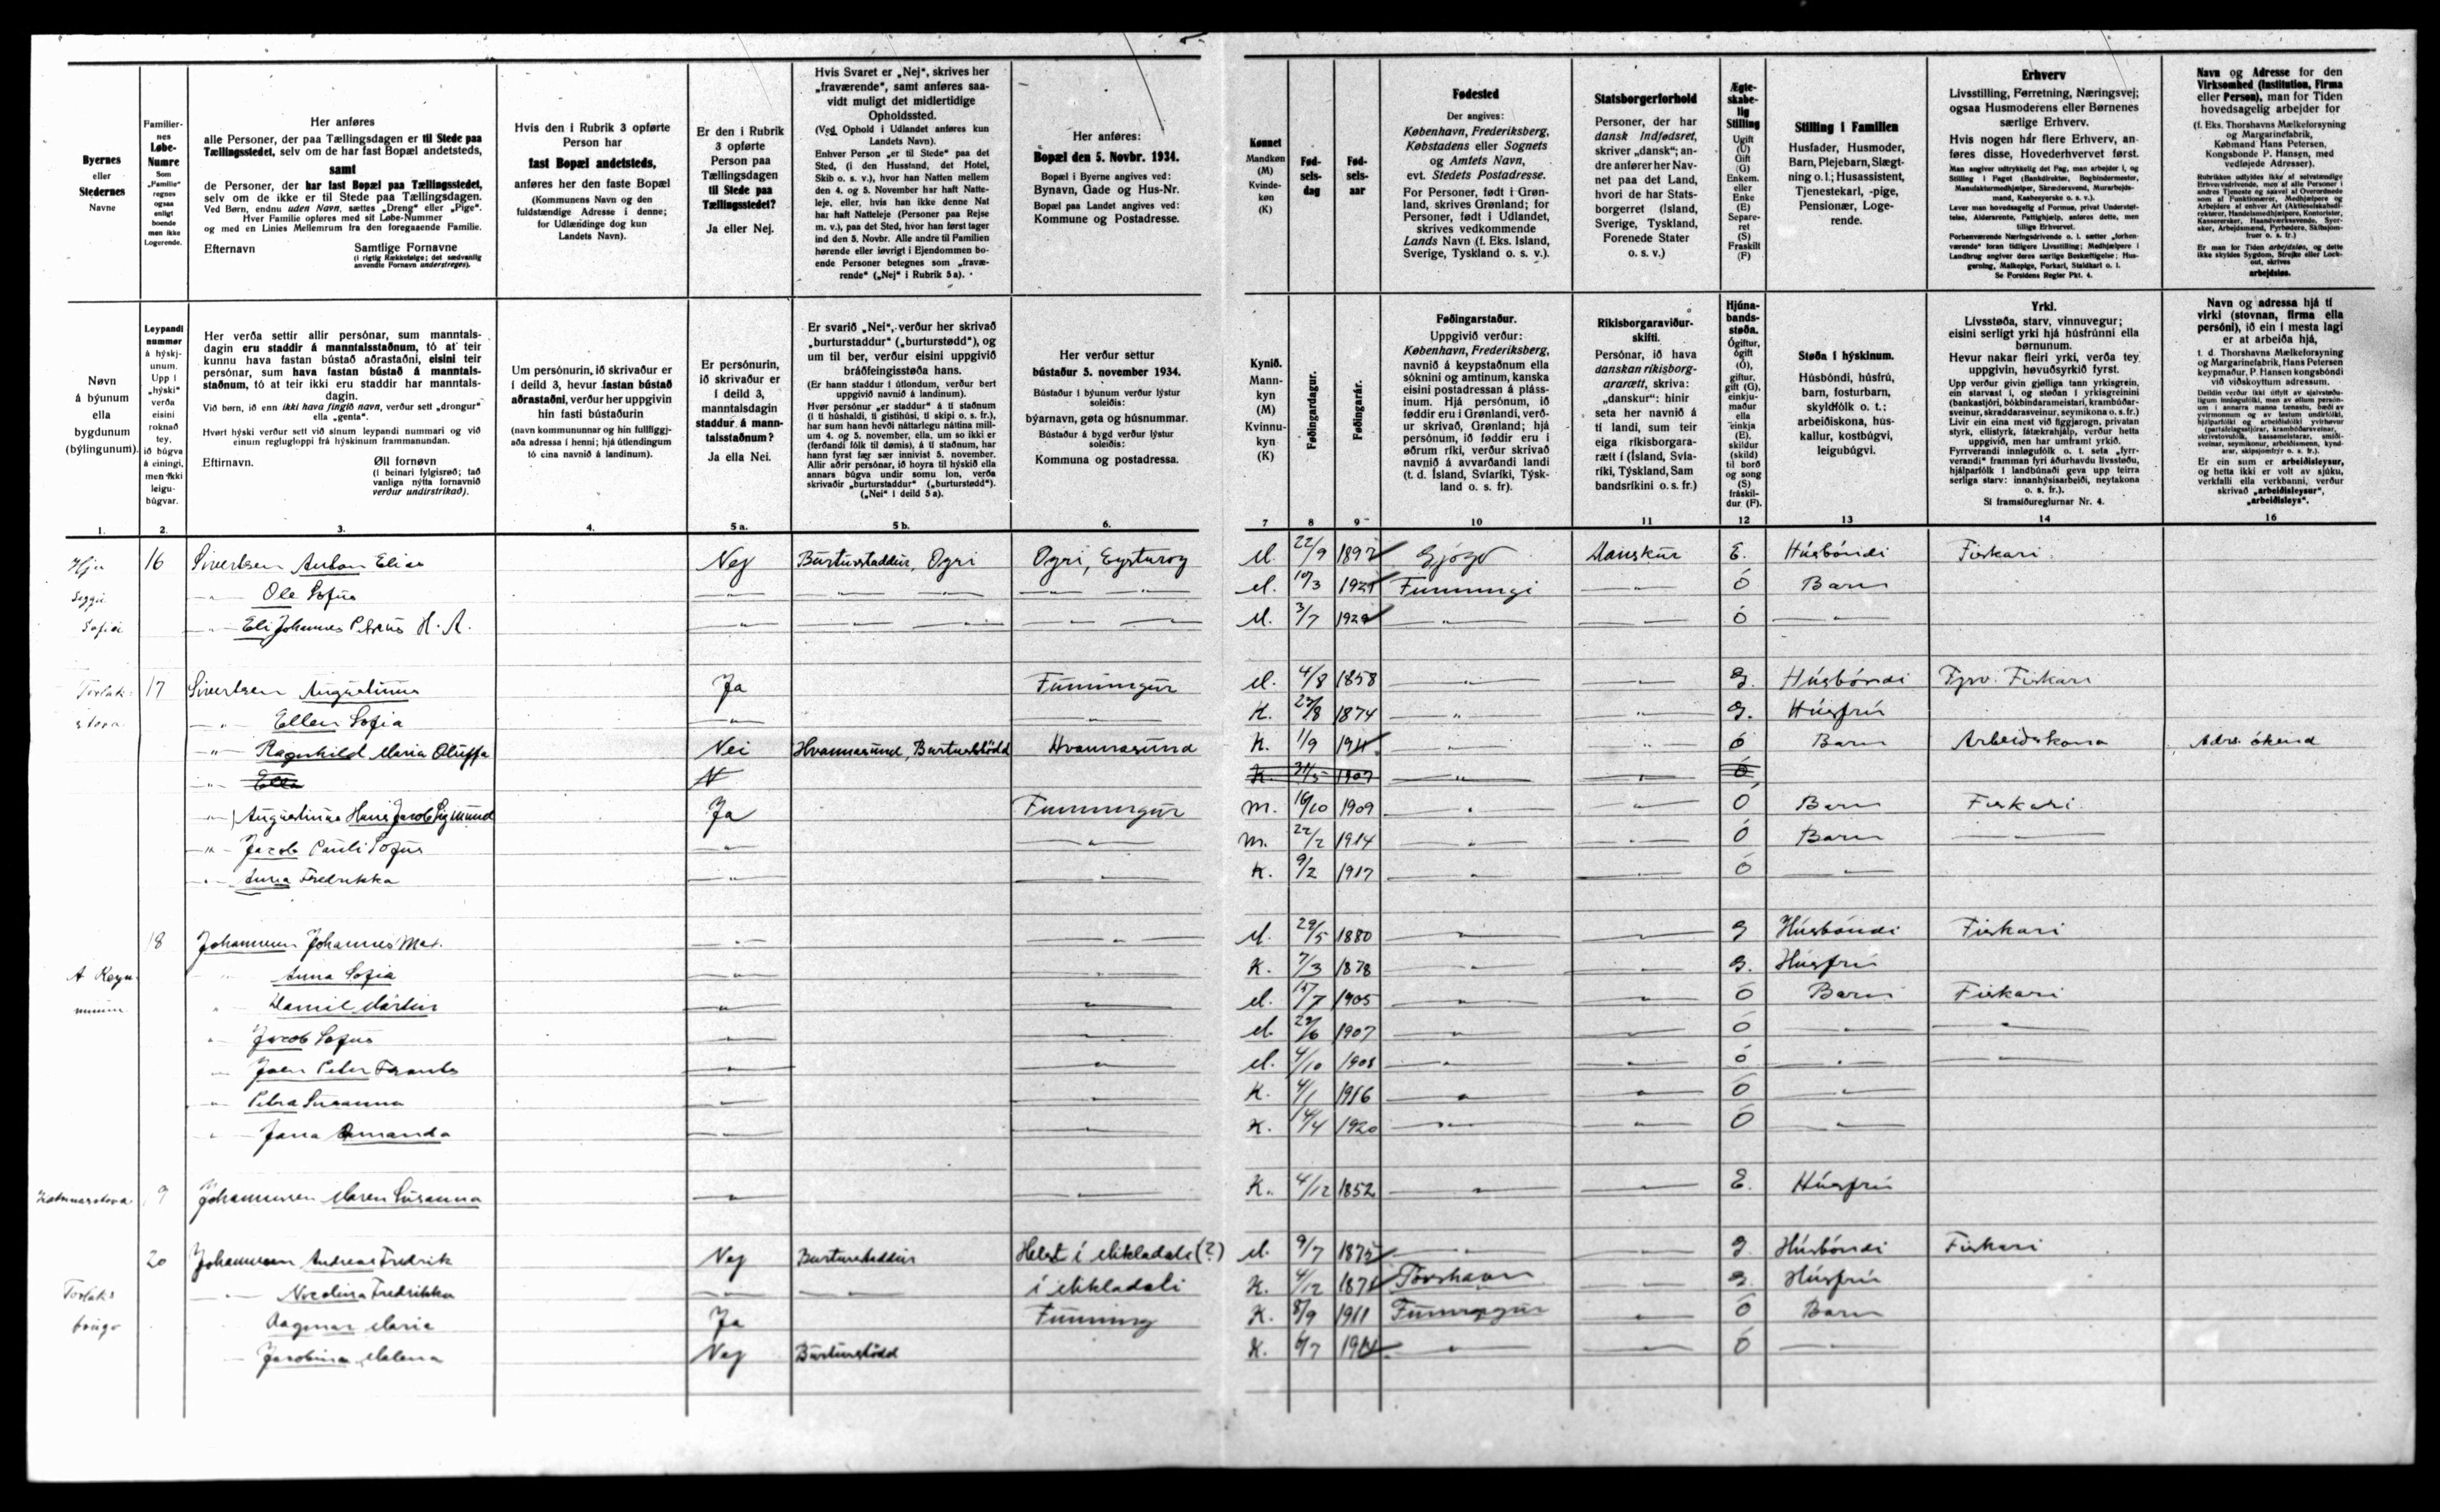 Byernes
eller
Stedernes
Navne
Familier-
nes
Løbe-
Numre
Som
„Familie"
regnes
ogsaa
enligt
boende
men ikke
Logerende.
Her anføres
alle Personer, der paa Tællingsdagen er til Stede paa
Tællingsstedet, selv om de har fast Bopæl andetsteds,
samt
de Personer, der har fast Bopæl paa Tællingsstedet,
selv om de ikke er til Stede paa Tællingsdagen.
Ved Børn, endnu uden Navn, sættes „Dreng" eller „Pige".
Hver Familie opføres med sit Løbe-Nummer
og med en Linies Mellemrum fra den foregaaende Familie.
Efternavn Samtlige Fornavne
(i rigtig Rækkefølge; det sædvanlig
anvendte Fornavn understreges).
Hvis den i Rubrik 3 opførte
Person har
fast Bopæl andetsteds,
anføres her den faste Bopæl
(Kommunens Navn og den
fuldstændige Adresse i denne;
for Udlændinge dog kun
Landets Navn).
Er den i Rubrik
3 opførte
Person paa
Tællingsdagen
til Stede paa
Tællingsstedet?
Ja eller Nej.
Hvis Svaret er „Nej", skrives her
„fraværende", samt anføres saa-
vidt muligt det midlertidige
Opholdssted.
(Ved Ophold i Udlandet anføres kun
Landets Navn).
Enhver Person „er til Stede" paa det
Sted, (i den Husstand, det Hotel,
Skib o. s. v.), hvor han Natten mellem
den 4. og 5. November har haft Natte-
leje, eller, hvis han ikke denne Nat
har haft Natteleje (Personer paa Rejse
m. v.), paa det Sted, hvor han først tager
ind den 5. Novbr. Alle andre til Familien
hørende eller iøvrigt i Ejendommen bo-
ende Personer betegnes som „fravæ-
rende" („Nej" i Rubrik 5 a).
Her anføres:
Bopæl den 5. Novbr. 1934.
Bopæl i Byerne angives ved:
Bynavn, Gade og Hus-Nr.
Bopæl paa Landet angives ved:
Kommune og Postadresse.
Kønnet
Mandkøn
(M)
Kvinde-
køn
(K)
Fød-
sels-
dag
Fød-
sels-
aar
Fødested
Der angives:
København, Frederiksberg,
Købstadens eller Sognets
og Amtets Navn,
evt. Stedets Postadresse.
For Personer, født i Grøn-
land, skrives Grønland; for
Personer, født i Udlandet,
skrives vedkommende
Lands Navn (f. Eks. Island,
Sverige, Tyskland o. s. v.).
Statsborgerforhold
Personer, der har
dansk Indfødsret,
skriver „dansk"; an-
dre anfører her Nav-
net paa det Land,
hvori de har Stats-
borgerret (Island,
Sverige, Tyskland,
Forenede Stater
o. s. v.)
Ægte-
skabe-
lig
Stilling
Ugift
(U)
Gift
(G)
Enkem.
eller
Enke
(E)
Separe-
ret
(S)
Fraskilt
(F)
Stilling i Familien
Husfader, Husmoder,
Barn, Plejebarn, Slægt-
ning o. l.; Husassistent,
Tjenestekarl, -pige,
Pensionær, Loge-
rende.
Erhverv
Livsstilling, Forretning, Næringsvej;
ogsaa Husmoderens eller Børnenes
særlige Erhverv.
Hvis nogen har flere Erhverv, an-
føres disse, Hovederhvervet først.
Se Forsidens Regler Pkt. 4.
Navn og Adresse for den
Virksomhed (Institution, Firma
eller Person), man for Tiden
hovedsagelig arbejder for
(f. Eks. Thorshavns Mælkeforsyning
og Margarinefabrik,
Købmand Hans Petersen,
Kongsbonde P. Hansen, med
vedføjede Adresser).
Er man for Tiden arbejdsløs, og dette
ikke skyldes Sygdom, Strejke eller Lock-
out, skrives
arbejdsløs.
Nøvn
á býunum
ella
bygdunum
(býlingunum).
Leypandi
nummer
á hýskj-
unum.
Upp í
„hýski"
verða
eisini
roknað
tey,
ið búgva
á einingi,
men ikki
leigu-
búgvar.
Her verða settir allir persónar, sum manntals-
dagin eru staddir á manntalsstaðnum, tó at teir
kunnu hava fastan bústað aðrastaðni, eisini teir
persónar, sum hava fastan bústað á manntals-
staðnum, tó at teir ikki eru staddir har manntals-
dagin.
Við børn, ið enn ikki hava fingið navn, verður sett „drongur"
ella „genta".
Hvørt hýski verður sett við sínum leypandi nummari og við
einum reglugloppi frá hýskinum frammanundan.
Eftirnavn. Øll fornøvn
(í beinari fylgisrøð; tað
vanliga nýtta fornavnið
verður undirstrikað).
Um persónurin, ið skrivaður er
í deild 3, hevur fastan bústað
aðrastaðni, verður her uppgivin
hin fasti bústaðurin
(navn kommununnar og hin fullfíggj-
aða adressa í henni; hjá útlendingum
tó eina navnið á landinum).
Er persónurin,
ið skrivaður er
í deild 3,
manntalsdagin
staddur á mann-
talsstaðnum?
Ja ella Nei.
Er svarið „Nei", verður her skrivað
„burturstaddur" („burturstødd"), og
um til ber, verður eisini uppgivið
bráðfeingisstøða hans.
(Er hann staddur í útlondum, verður bert
uppgivið navnið á landinum).
Hvør persónur „er staddur" á tí staðnum
(í tí húshaldi, tí gistihúsi, tí skipi o. s. fr.),
har sum hann hevði náttarlegu náttina mill-
um 4. og 5. november, ella, um so ikki er
(ferðandi fólk til dømis), á tí staðnum, har
hann fyrst fær sær innivist 5. november.
Allir aðrir persónar, ið hoyra til hýskið ella
annars búgva undir somu lon, verða
skrivaðir „burturstaddur" („burturstødd").
(„Nei" í deild 5 a).
Her verður settur
bústaður 5. november 1934.
Bústaður í býunum verður lýstur
soleiðis:
býarnavn, gøta og húsnummar.
Bústaður á bygd verður lýstur
soleiðis:
Kommuna og postadressa.
Kynið.
Mann-
kyn
(M)
Kvinnu-
kyn
(K)
Føðingardagur.
Føðingarár.
Føðingarstaður.
Uppgivið verður:
København, Frederiksberg,
navnið á keypstaðnum ella
sóknini og amtinum, kanska
eisini postadressan á pláss-
inum. Hjá persónum, ið
føddir eru í Grønlandi, verð-
ur skrivað, Grønland; hjá
persónum, ið føddir eru í
øðrum ríki, verður skrivað
navnið á avvarðandi landi
(t. d. Ísland, Svíaríki, Týsk-
land o. s. fr).
Ríkisborgaraviður-
skifti.
Persónar, ið hava
danskan ríkisborg-
ararætt, skriva:
„danskur": hinir
seta her navnið á
tí landi, sum teir
eiga ríkisborgara-
rætt í (Ísland, Svía-
ríki, Týskland, Sam
bandsríkini o. s. fr.)
Hjúna-
bands-
støða.
Ógiftur,
ógift
(Ó),
giftur,
gift (G),
einkju-
maður
ella
einkja
(E),
skildur
(skild)
til borð
og song
(S)
fráskil-
dur (F).
Støða í hýskinum.
Húsbóndi, húsfrú,
barn, fosturbarn,
skyldfólk o. t.;
arbeiðiskona, hús-
kallur, kostbúgvi,
leigubúgvi.
Yrki.
Livsstøða, starv, vinnuvegur;
eisini serligt yrki hjá húsfrúnni ella
børnunum.
Hevur nakar fleiri yrki, verða tey
uppgivin, høvuðsyrkið fyrst.
Sí framsíðureglurnar Nr. 4.
Navn og adressa hjá tí
virki (stovnan, firma ella
persóni), ið ein í mesta lagi
er at arbeiða hjá,
t. d. Thorshavns Mælkeforsyning
og Margarinefabrik, Hans Petersen
keypmaður, P. Hansen kongsbóndi
við viðskoyttum adressum.
Er ein sum er arbeiðisleysur,
og hetta ikki er volt av sjúku,
verkfalli ella verkbanni, verður
skrivað „arbeiðisleysur",
„arbeiðisleys".
1. 2. 3. 4. 5 a. 5 b. 6. 7 8 9 10 11 12 13 14 16
Hjá 16 Sivertsen Anton Elias Nej Burturstaddur, Ogri Ogri, Eysturoy M. 22/9 1897 Gjógv Danskur E. Húsbóndi Fiskari
Sofiu -"- Ole Sofus -"- -"- -"- M. 10/3 Funningi -"- Ó Barn
-"- Eli Johannes Petrus H. A. -"- -"- -"- M. 3/7 -"- Ó -"-
17 Sivertsen Augustinus Ja Funningur M. 4/8 1858 -"- -"- G. Húsbóndi Fyrv. Fiskari
stova -"- Ellen Sofia -"- -"- K. 1874 -"- -"- G. Húsfrú
-"- Ragnhild Maria Oluffa Nei Hvannasund, Burturstødd Hvannasund K. 1/9 1911 -"- -"- Ó Barn Arbeiðskona Adr. ókend
-"- Ella N K. 31/5 1907 -"- -"- Ó
-"- Augustinus Hans Jacob Sigmund Ja Funningur M. 16/10 1909 -"- -"- Ó Barn Fiskari
-"- Jacob Pauli Sofus -"- -"- M. 22/2 1914 -"- -"- Ó Barn -"-
-"- Anna Fredrikka -"- -"- K. 9/2 1917 -"- -"- Ó -"-
18 Johannesen Johannes Mat. -"- -"- M. 29/5 1880 -"- -"- G Húsbóndi Fiskari
Á -"- Anna Sofia -"- -"- K. 7/3 1878 -"- -"- G. Húsfrú
-"- Daniel Mártin -"- -"- M. 1905 -"- -"- Ó Barn Fiskari
-"- Jacob Sofus -"- -"- M. 1907 -"- -"- Ó -"- -"-
-"- Joen Peter Frants -"- -"- M. 4/10 1908 -"- -"- Ó -"- -"-
-"- Petra Susanna -"- -"- K. 4/1 1916 -"- -"- Ó -"-
-"- Jana Amanda -"- -"- K. 14/4 1920 -"- -"- Ó -"-
9 Johannesen Maren Susanna -"- -"- K. 4/12 1852 -"- -"- E. Húsfrú
20 Johannesen Andreas Fredrik Nej Burturstaddur Helst í Mikladali (?) M. 9/7 1875 -"- -"- G. Húsbóndi Fiskari
-"- Nicolina Fredrikka -"- -"- í Mikladali K. 4/12 Torshavn -"- G. Húsfrú
Dagmar Maria Ja Funning K. 8/9 1911 Funningur -"- Ó Barn
Jacobina Malena Nej Burturstødd K. 6/7 -"- -"- Ó -"-